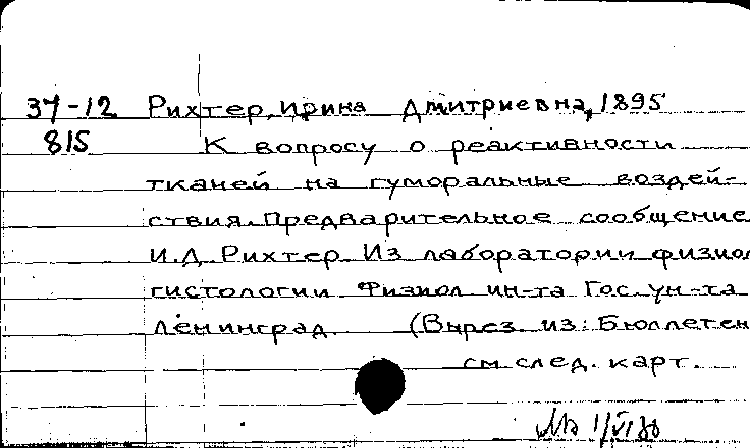 37-12 Рихтер, Ирина Дмитриевна, 1895
815 К вопросу о реактивности
тканей на гуморальные воздей-
ствия. Предварительное сообщение
И.Д. Рихтер. Из лаборатории физиол
гистологии Физиол ин-та Гос. ун-та
Ленинград. (Вырез. из: Бюллетен
см след. карт.